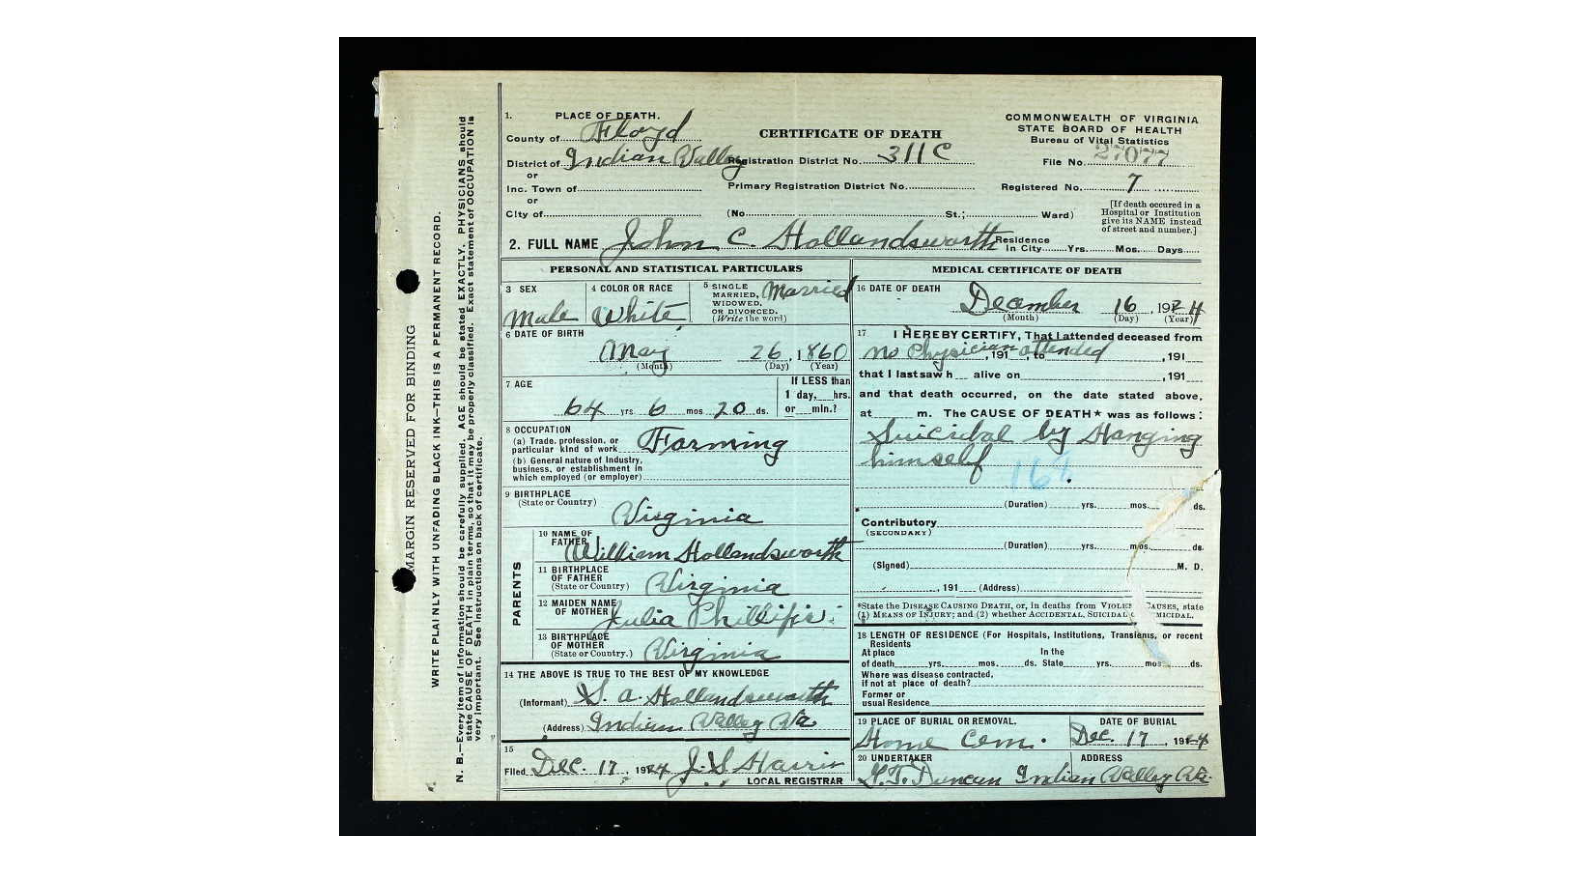 MARGIN RESERVED FOR BINDING
WRITE PLAINLY WITH UNFADING BLACK INK—THIS IS A PERMANENT RECORD.
N. B.—Every item of Information should be carefully supplied. AGE should be stated EXACTLY. PHYSICIANS should
state CAUSE OF DEATH in plain terms, so that it may be properly classified. Exact statement of OCCUPATION is
very important. See Instructions on back of certificate.
1. PLACE OF DEATH.
County of Floyd
District of Indian Valley
or
Inc. Town of
or
City of
CERTIFICATE OF DEATH
Registration District No. 311C
Primary Registration District No.
(No. St.; Ward)
COMMONWEALTH OF VIRGINIA
STATE BOARD OF HEALTH
Bureau of Vital Statistics
File No. 27077
Registered No. 7
[If death occured in a
Hospital or Institution
give its NAME instead
of street and number.]
2. FULL NAME John C. Hollandsworth Residence In City Yrs. Mos. Days
PERSONAL AND STATISTICAL PARTICULARS
3 SEX
Male
4 COLOR OR RACE
White
5 SINGLE
MARRIED,
WIDOWED,
OR DIVORCED.
(Write the word)
Married
6 DATE OF BIRTH
May 26, 1860
(Month) (Day) (Year)
7 AGE
64 yrs 6 mos 20 ds.
If LESS than
1 day, hrs.
or min.?
8 OCCUPATION
(a) Trade, profession, or
particular kind of work Farming
(b) General nature of Industry,
business, or establishment in
which employed (or employer)
9 BIRTHPLACE
(State or Country)
Virginia
PARENTS
10 NAME OF
FATHER
William Hollandsworth
11 BIRTHPLACE
OF FATHER
(State or Country) Virginia
12 MAIDEN NAME
OF MOTHER Julia Phillips
13 BIRTHPLACE
OF MOTHER
(State or Country.) Virginia
14 THE ABOVE IS TRUE TO THE BEST OF MY KNOWLEDGE
(Informant) S. A. Hollandsworth
(Address) Indian Valley Va
15
Filed Dec. 17, 1924 J. S. Harris
LOCAL REGISTRAR
MEDICAL CERTIFICATE OF DEATH
16 DATE OF DEATH
December 16, 1924
(Month) (Day) (Year)
17 I HEREBY CERTIFY, That I attended deceased from
No Physician, 191 , to attended , 191
that I last saw h alive on , 191
and that death occurred, on the date stated above,
at m. The CAUSE OF DEATH* was as follows:
Suicidal by Hanging
himself
(Duration) yrs. mos. ds.
Contributory
(SECONDARY)
(Duration) yrs. mos. ds.
(Signed) M. D.
, 191 (Address)
*State the DISEASE CAUSING DEATH, or, in deaths from VIOLENT CAUSES, state
(1) MEANS OF INJURY; and (2) whether ACCIDENTAL, SUICIDAL MICIDAL.
18 LENGTH OF RESIDENCE (For Hospitals, Institutions, Transients, or recent
Residents
At place In the
of death yrs. mos. ds. State yrs. mos. ds.
Where was disease contracted,
if not at place of death?
Former or
usual Residence
19 PLACE OF BURIAL OR REMOVAL. DATE OF BURIAL
Home Cem. Dec. 17, 1924
20 UNDERTAKER ADDRESS
Duncan Indian Valley Va.